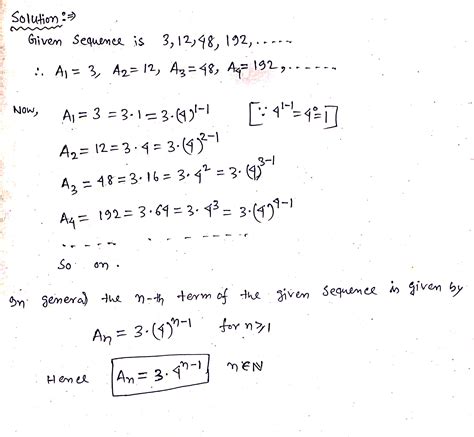 Solution :⇒
Given Sequence is 3, 12, 48, 192, .....
∴ A₁ = 3, A₂ = 12, A₃ = 48, A₄ = 192, .......
Now, A₁ = 3 = 3·1 = 3·(4)¹⁻¹ [∵ 4¹⁻¹ = 4⁰ = 1]
A₂ = 12 = 3·4 = 3·(4)²⁻¹
A₃ = 48 = 3·16 = 3·4² = 3·(4)³⁻¹
A₄ = 192 = 3·64 = 3·4³ = 3·(4)⁴⁻¹
So on.
In general the n-th term of the given sequence is given by
Aₙ = 3·(4)ⁿ⁻¹ for n ≥ 1
Hence Aₙ = 3·4ⁿ⁻¹ n ∈ N